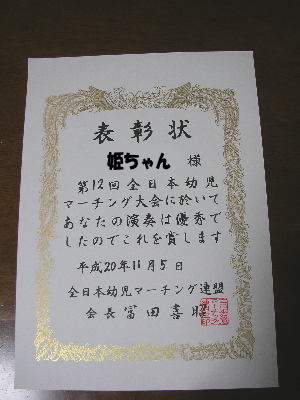 表彰状
姫ちゃん 様
第12回全日本幼児
マーチング大会に於いて
あなたの演奏は優秀で
したのでこれを賞します
平成20年11月5日
全日本幼児マーチング連盟
会長 冨田喜